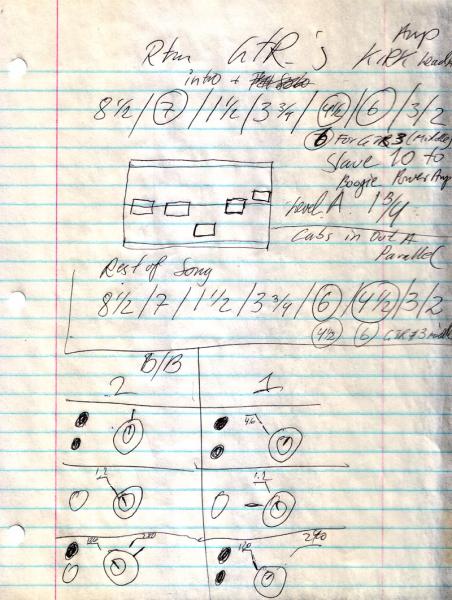 Rtm GTR_'s
Amp
KIRK Leads
intro +
8 1/2 / 7 / 1 1/2 / 3 3/4 / 4 1/2 / 6 / 3 / 2
6 For GTR 3 (Middle)
Slave 10 to
Boogie Power Amp
Level A 1 3/4
Cabs in Out A
Parallel
Rest of Song
8 1/2 / 7 / 1 1/2 / 3 3/4 / 6 / 4 1/2 / 3 / 2
4 1/2 6 GTR #3 Middle
B/B
2 1
46
1.2 1.2
240